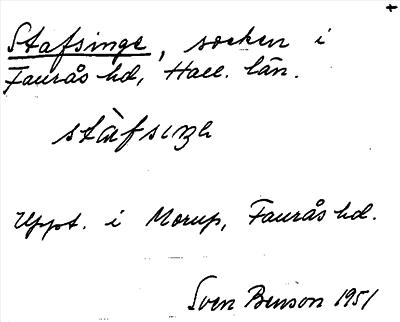 Stafsinge, socken i
Faurås hd, Hall. län.
stàfsıŋə
Uppt. i Morup, Faurås hd.
Sven Benson 1951